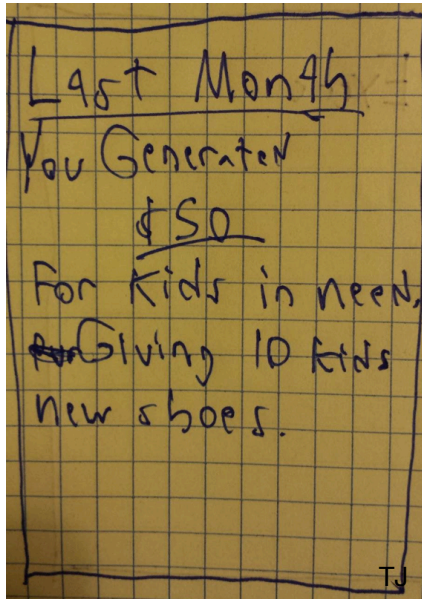 Last Month
You Generated
$50
For Kids in need,
Giving 10 kids
new shoes.
TJ